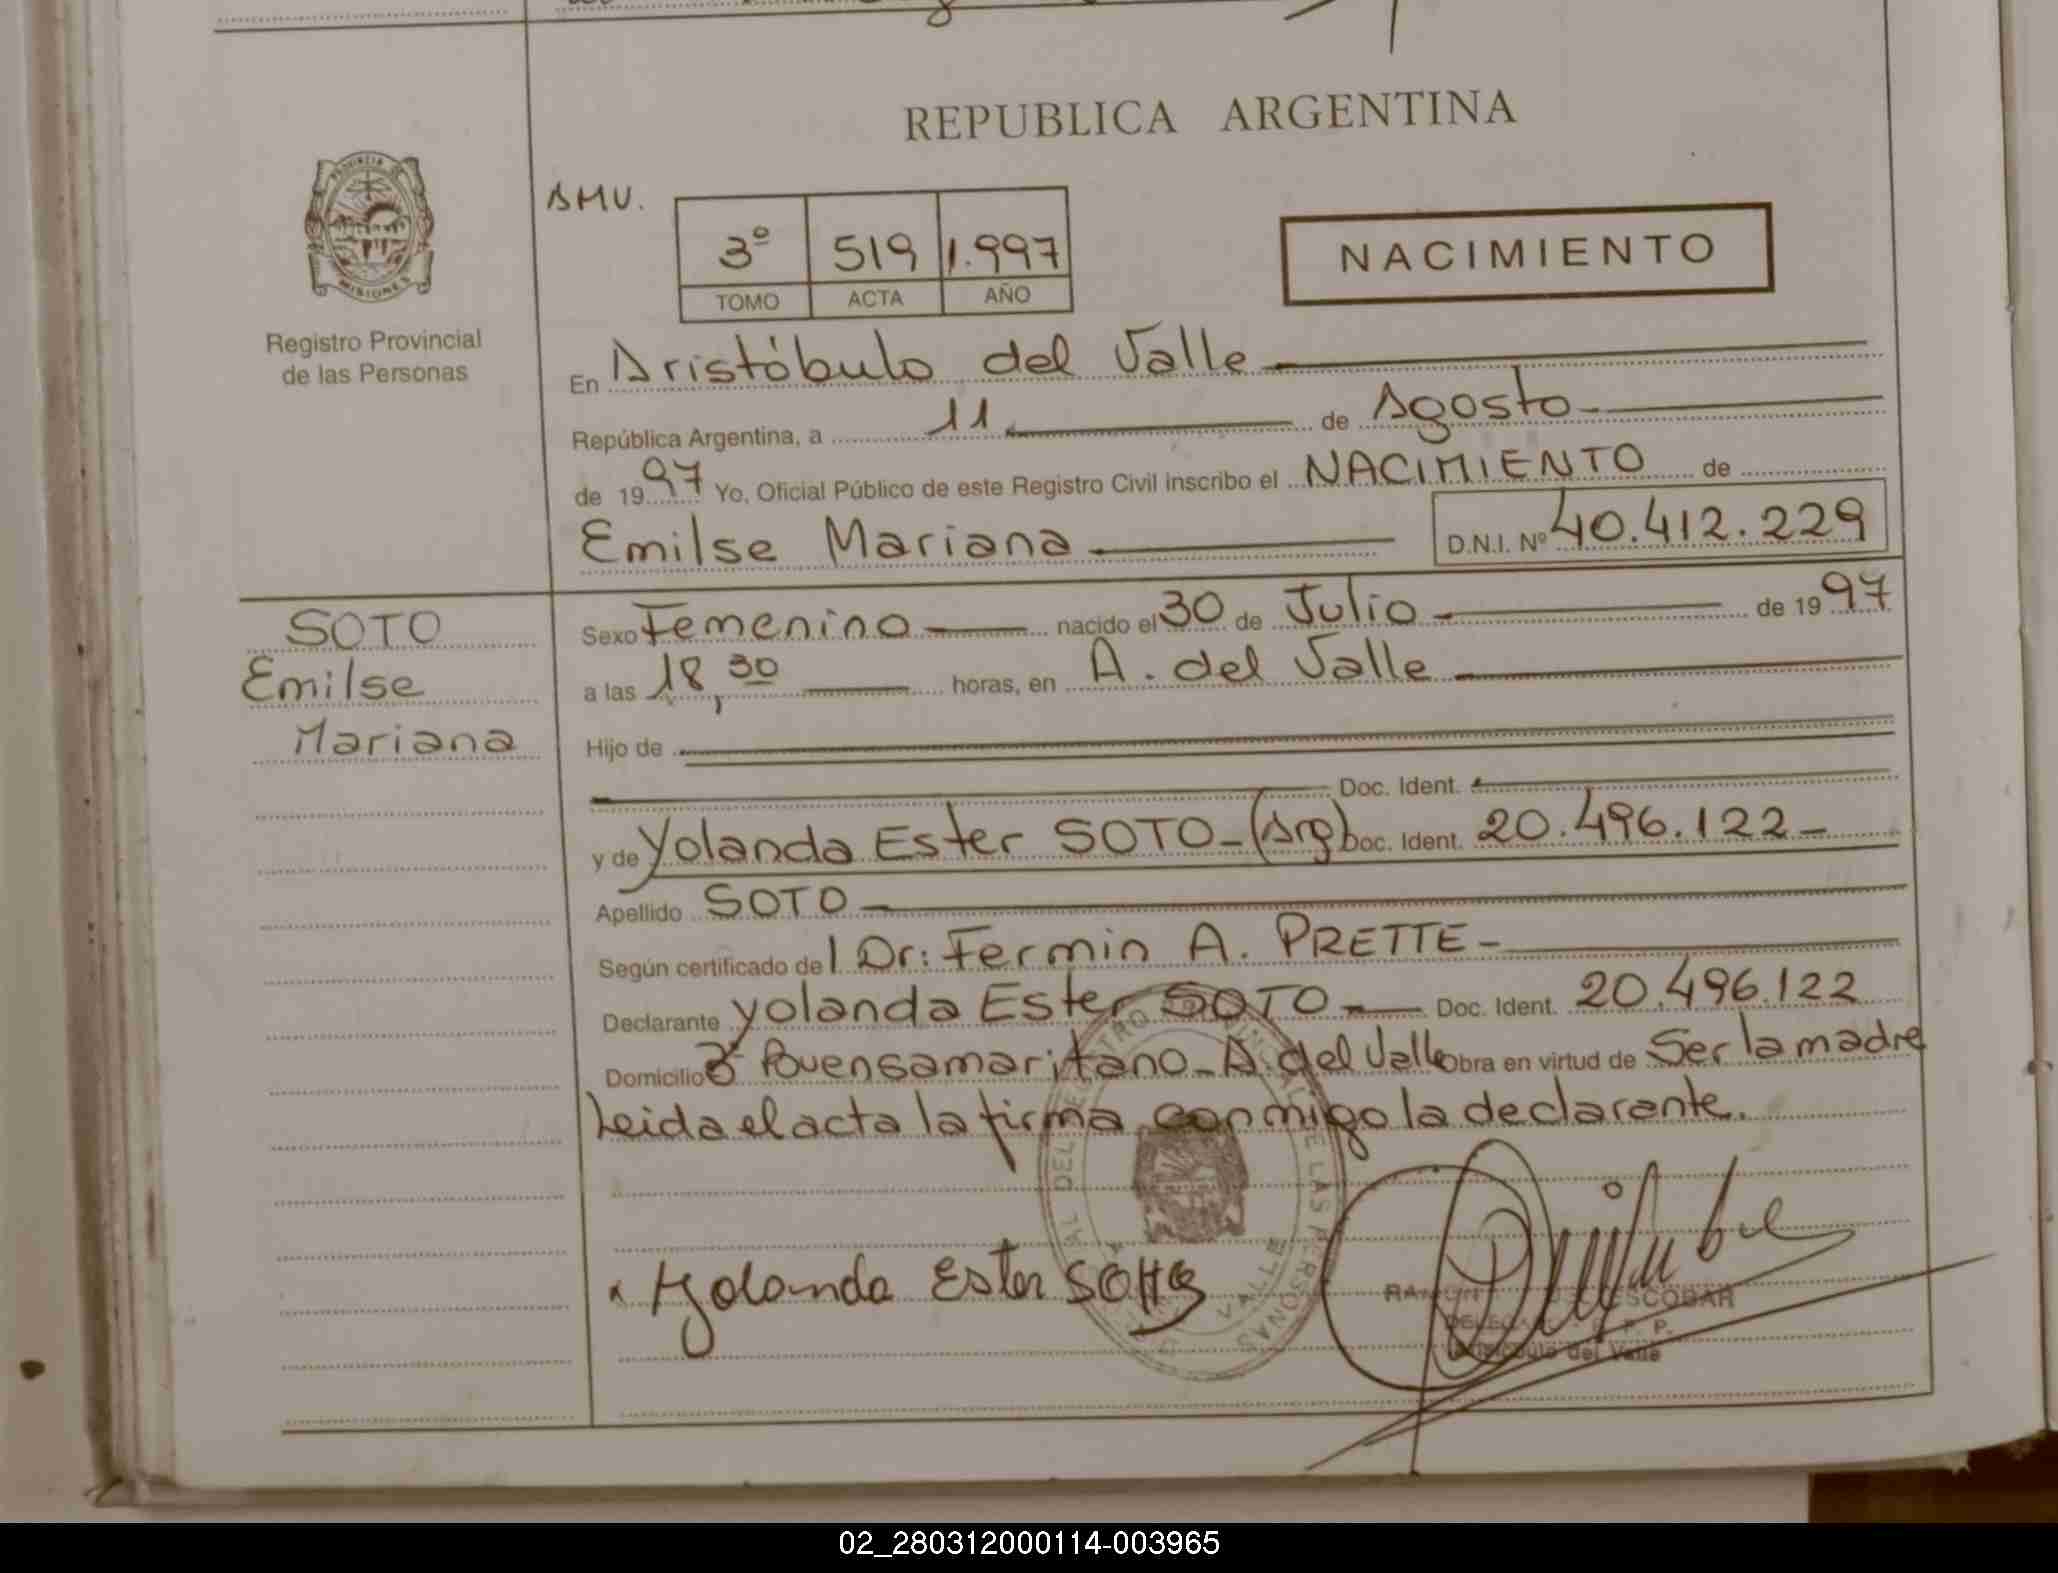 REPUBLICA ARGENTINA
PROVINCIA DE
MISIONES
Registro Provincial
de las Personas
AMV.
3º 519 1.997
TOMO ACTA AÑO
NACIMIENTO
En Aristóbulo del Valle
República Argentina, a 11 de Agosto
de 1997 Yo, Oficial Público de este Registro Civil inscribo el NACIMIENTO de
Emilse Mariana D.N.I. Nº 40.412.229
SOTO
Emilse
Mariana
Sexo Femenino nacido el 30 de Julio de 1997
a las 18,30 horas, en A. del Valle
Hijo de
Doc. Ident.
y de Yolanda Ester SOTO-(Arg) Doc. Ident. 20.496.122-
Apellido SOTO
Según certificado del Dr: Fermin A. PRETTE-
Declarante Yolanda Ester SOTO Doc. Ident. 20.496.122
Domicilio Bº Buensamaritano-A.del Valle Obra en virtud de Ser la madre
Leida el acta la firma conmigo la declarante.
Yolanda Ester
ESCOBAR
del Valle
02_280312000114-003965